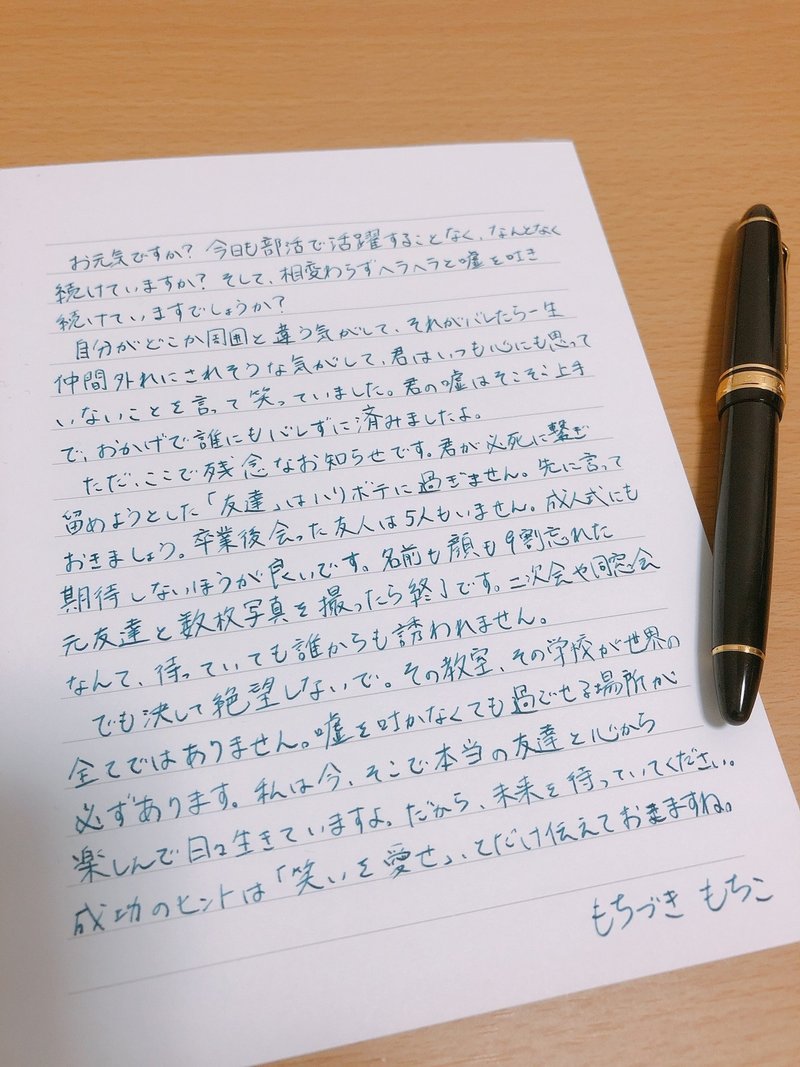 お元気ですか？今日も部活で活躍することなく、なんとなく
続けていますか？そして、相変わらずヘラヘラと嘘を吐き
続けていますでしょうか？
自分がどこか周囲と違う気がして、それがバレたら一生
仲間外れにされそうな気がして、君はいつも心にも思って
いないことを言って笑っていました。君の嘘はそこそこ上手
で、おかげで誰にもバレずに済みましたよ。
ただ、ここで残念なお知らせです。君が必死に繋ぎ
留めようとした「友達」はハリボテに過ぎません。先に言って
おきましょう。卒業後会った友人は5人もいません。成人式にも
期待しないほうが良いです。名前も顔も9割忘れた
元友達と数枚写真を撮ったら終了です。二次会や同窓会
なんて、待っていても誰からも誘われません。
でも決して絶望しないで。その教室、その学校が世界の
全てではありません。嘘を吐かなくても過ごせる場所が
必ずあります。私は今、そこで本当の友達と心から
楽しんで日々生きていますよ。だから、未来を待っていてください。
成功のヒントは「笑いを愛せ」、てだけ伝えておきますね。
もちづき もちこ